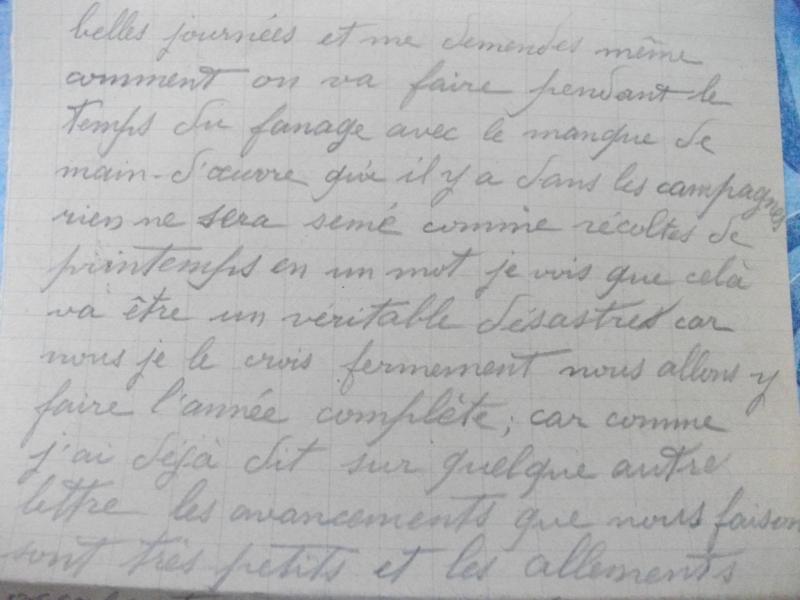 belles journées et me demendes même
comment on va faire pendant le
temps du fanage avec le manque de
main-d'œuvre qu'il y a dans les campagnes
rien ne sera semé comme récoltes de
printemps en un mot je vois que celà
va être un véritable désastres car
nous je le crois fermement nous allons y
faire l'année complête; car comme
j'ai déjà dit sur quelque autre
lettre les avancements que nous faison
sont très petits et les allements